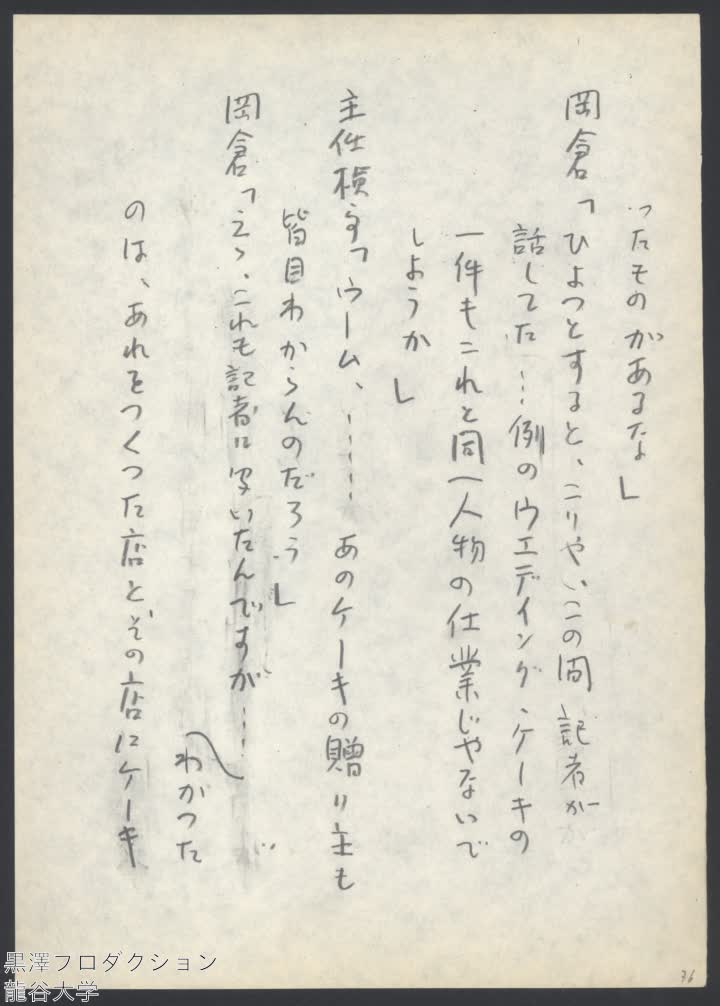 つたものがあるな」
岡倉「ひよつとすると、こりや、この間記者が
話してた…例のウエディング・ケーキの
一件もこれと同一人物の仕業じやないで
しようか」
主任検事「ウーム、……あのケーキの贈り主も
皆目わからんのだろう」
岡倉「えゝ、これも記者に聞いたんですが…
わかつた
のは、あれをつくつた店とその店にケーキ
76
黒澤プロダクション
龍谷大学